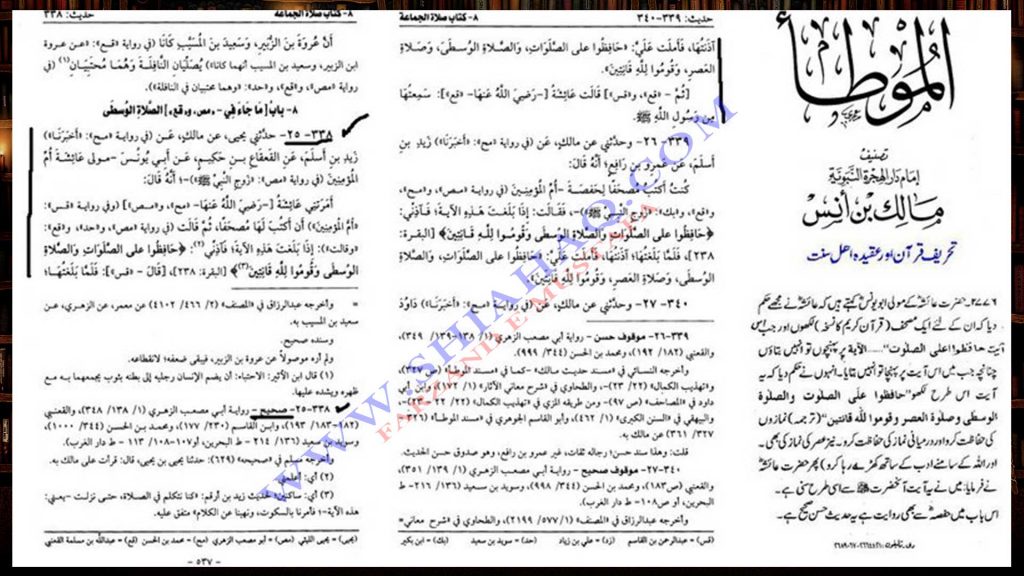 ٨- كتاب صلاة الجماعة
حديث: ٣٣٨
أَنَّ عُرْوَةَ بنَ الزُّبَيرِ، وَسَعِيدَ بنَ الْمُسَيَّبِ كَانَا (في رواية «قع»: «عن عروة
ابن الزبير، وسعيد بن المسيب أنهما كانا») يُصَلِّيَانِ النَّافِلَةَ وَهُمَا مُحتَبِيَانِ(١) (في
رواية «مص»، و«قع»، و«حد»: «وهما محتبيان في النافلة»).
٨- باب [مَا جَاءَ فِي - «مص»، و«قع»] الصَّلاةِ الوُسْطَى
٣٣٨- ٢٥- حدَّثني يحيى، عن مالكٍ، عَن (في رواية «مح»: «أخبرنا»)
زَيدِ بنِ أَسْلَمَ، عَنِ القَعْقَاعِ بنِ حَكِيمٍ، عَن أَبِي يُونُسَ -مولى عَائِشَةَ أُمِّ
المُؤْمِنِينَ (في رواية «مص»: «زوج النبيّ ﷺ»)-؛ أَنَّهُ قَالَ:
أَمَرَتنِي عَائِشَةُ [-رَضِيَ اللَّهُ عَنهَا- «مح»، و«مص»] (وفي رواية «قس»:
«أم المؤمنين») أَن أَكتُبَ لَهَا مُصْحَفًا، ثُمَّ قَالَت (في رواية «مص»، و«حد»، و«قع»:
«وقالت»): إِذَا بَلَغتَ هَذِهِ الآيَةَ؛ فَآذِنِّي(٢): ﴿حَافِظُوا عَلَى الصَّلَوَاتِ وَالصَّلاةِ
الوُسْطَى وَقُومُوا لِلَّهِ قَانِتِينَ(٣)﴾ [البقرة: ٢٣٨]، [قَالَ - «قس»]: فَلَمَّا بَلَغتُهَا؛
= وأخرجه عبدالرزاق في «المصنف» (٢/ ٤٦٦/ ٤١٠٢) عن معمر، عن الزهري، عن
سعيد بن المسيب به.
وسنده صحيح.
ولم أره موصولاً عن عروة بن الزبير، فيبقى ضعفه؛ لانقطاعه.
(١) قال ابن الأثير: الاحتباء: أن يضم الإنسان رجليه إلى بطنه بثوب يجمعهما به مع
ظهره ويشده عليها.
٣٣٨-٢٥- صحيح - رواية أبي مصعب الزهري (١/ ١٣٨/ ٣٤٨)، والقعنبي
(١٨٢-١٨٣/ ١٩٣)، وابن القاسم (٢٣٠/ ١٧٧)، ومحمد بن الحسن (٣٤٤/ ١٠٠٠)،
وسويد بن سعيد (١٣٦/ ٢١٤ - ط البحرين، أو١٠٧-١٠٨/ ١١٣ - ط دار الغرب).
وأخرجه مسلم في «صحيحه» (٦٢٩): حدثنا يحيى بن يحيى، قال: قرأت على مالك به.
(٢) أي: أعلمني.
(٣) أي: ساكتين؛ لحديث زيد بن أرقم: «كنا نتكلم في الصلاة، حتى نزلت -يعني:
هذه الآية-؛ فأمرنا بالسكوت، ونهينا عن الكلام» متفق عليه.
(يحيى) = يحيى الليثي (مص) = أبو مصعب الزهري (مح) = محمد بن الحسن (قع) = عبدالله بن مسلمة القعنبي
- ٥٣٧ -
حديث: ٣٣٩-٣٤٠
٨- كتاب صلاة الجماعة
آذَنتُهَا، فَأَملَت عَلَيَّ: «حَافِظُوا على الصَّلَوَاتِ، وَالصَّلاةِ الوُسطَى، وَصَلاةِ
العَصرِ، وَقُومُوا لِلَّهِ قَانِتِينَ».
[ثُمَّ - «قع»، و«قس»] قَالَت عَائِشَةُ [-رَضِيَ اللَّهُ عَنهَا- «قع»]: سَمِعتُهَا
مِن رَسُولِ اللَّهِ ﷺ.
٣٣٩- ٢٦- وحدَّثني عن مالك، عَن (في رواية «مح»: «أَخبَرَنَا») زَيدِ بنِ
أَسلَمَ، عَن عَمرِو بنِ رَافِعٍ؛ أَنَّهُ قَالَ:
كُنتُ أَكتُبُ مُصحَفًا لِحَفصَةَ -أُمِّ المُؤمِنِينَ (في رواية «مص»، و«مح»،
و«قع»، و«بك»: «زوج النبيّ ﷺ»)-، فَقَالَت: إِذَا بَلَغتَ هَذِهِ الآيَةَ؛ فَآذِنِّي:
﴿حَافِظُوا عَلَى الصَّلَوَاتِ وَالصَّلاةِ الوُسطَى وَقُومُوا لِلَّهِ قَانِتِينَ﴾ [البقرة:
٢٣٨]، فَلَمَّا بَلَغتُهَا؛ آذَنتُهَا، فَأَملَت عَلَيَّ: «حَافِظُوا على الصَّلَوَاتِ، وَالصَّلاةِ
الوُسطَى، وَصَلاةِ العَصرِ، وَقُومُوا لِلَّهِ قَانِتِينَ».
٣٤٠- ٢٧- وحدَّثني عن مالك، عَن (في رواية «مح»: «أَخبَرَنَا») دَاوُدَ
٣٣٩-٢٦- موقوف حسن - رواية أبي مصعب الزهري (١/ ١٣٨-١٣٩/ ٣٤٩)،
والقعنبي (١٨٢/ ١٩٢)، ومحمد بن الحسن (٣٤٤/ ٩٩٩).
وأخرجه النسائي في «مسند حديث مالك» -كما في «مسند الموطأ»
و«تهذيب الكمال» (٢٢/ ٢٣)-، والطحاوي في «شرح معاني الآثار»
داود في «المصاحف» (ص ٩٧)- ومن طريقه المزي في «تهذيب الكمال» (٢٢/
والبيهقي في «السنن الكبرى» (١/ ٤٦٢)، وأبو القاسم الجوهري في «مسند الموطأ»
٣٢٧/ ٣٦١) عن مالك به.
قلت: وهذا سند حسن؛ رجاله ثقات، غير عمرو بن رافع، وهو صدوق حسن الحديث.
٣٤٠-٢٧- موقوف صحيح - رواية أبي مصعب الزهري (١/ ١٣٩/ ٣٥١)،
والقعنبي (ص١٨٣)، ومحمد بن الحسن (٣٤٤/ ٩٩٨)، وسويد بن سعيد (١٣٦/ ٢١٦- ط
البحرين، أو ص١٠٨- ط دار الغرب).
وأخرجه عبدالرزاق في «المصنف» (١/ ٥٧٧/ ٢١٩٩)، والطحاوي في «شرح معاني =
(قس) = عبدالرحمن بن القاسم (زد) = علي بن زياد (حد) = سويد بن سعيد (بك) = ابن بكير
الموطأ
تصنيف
إمام دار الهجرة النبوية
مالك بن أنس
تحریف قرآن اور عقیدہ اہل سنت
۲۷۷۶: حضرت عائشہؓ کے مولی ابو یونس کہتے ہیں کہ عائشہؓ نے مجھے حکم
دیا کہ ان کے لئے ایک مصحف (قرآن کریم کا نسخہ) لکھوں اور جب اس
آیت "حافظوا على الصلوت" ...... الآیۃ پر پہنچوں تو انہیں بتاؤں
چنانچہ جب میں اس آیت پر پہنچا تو انہیں بتایا۔ انہوں نے حکم دیا کہ یہ
آیت اس طرح لکھو "حافظوا على الصلوت والصلوة
الوسطى وصلوة العصر وقوموا لله قانتين" (ترجمہ) نمازوں
کی حفاظت کرو اور درمیانی نماز کی حفاظت کرو۔ نیز عصر کی نماز کی بھی۔
اور اللہ کے سامنے ادب کے ساتھ کھڑے رہا کرو) پھر حضرت عائشہؓ
نے فرمایا: میں نے یہ آیت آنحضرت ﷺ سے اسی طرح سنی ہے۔
اس باب میں حفصہؓ سے بھی روایت ہے یہ حدیث حسن صحیح ہے۔
WWW.SHIAHAQ.COM
FARZAND E MUSTAFA